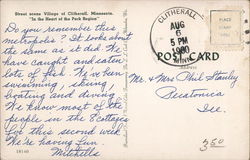 Street scene Village of Clitherall, Minnesota.
"In the Heart of the Park Region"
Do you remember this
metropolis? It looks about
the same as it did. We
have caught and eaten
lots of fish. We've been
swimming, skiing,
boating and diving.
We know most of the
people in the Cottages
for this second week.
We're having fun.
Mitchells
CLITHERALL
AUG
6
5 PM
1960
MINN.
POST CARD
Mr. & Mrs. Phil Stanley
Pecatonica
Ill.
350